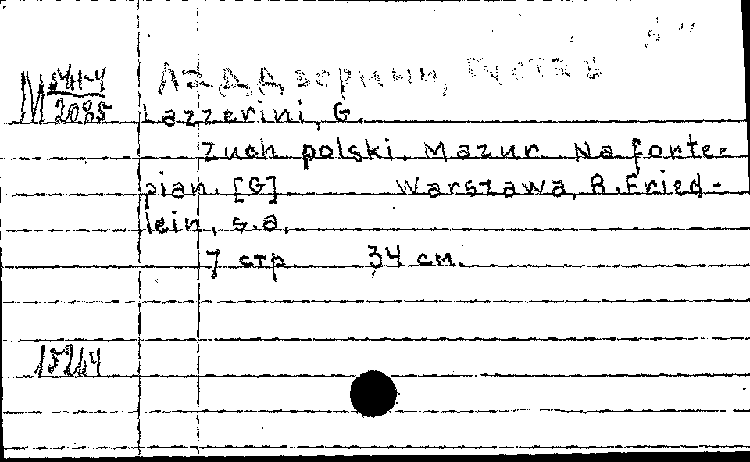 М 541-4
2085
Ладдзерини, Густав
Lazzerini, G.
Zuch polski. Mazur. Na forte-
pian. [G] Warszawa, R. Fried-
lein, s.a.
7 стр 34 см.
15264